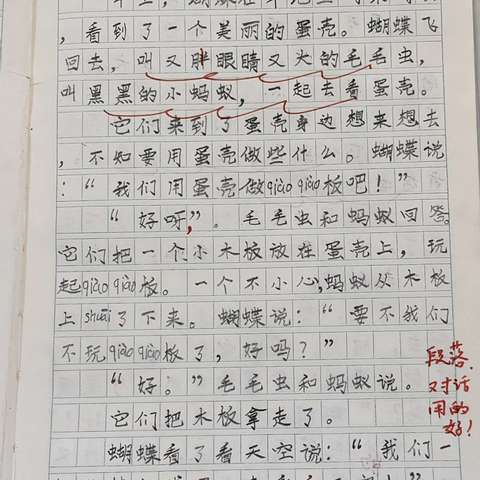 ，看到了一个美丽的蛋壳。蝴蝶飞
回去，叫又胖眼睛又大的毛毛虫，
叫黑黑的小蚂蚁，一起去看蛋壳。
它们来到了蛋壳身边想来想去
，不知要用蛋壳做些什么。蝴蝶说
：“我们用蛋壳做qiāo qiāo板吧！”
“好呀”。毛毛虫和蚂蚁回答。
它们把一个小木板放在蛋壳上，玩
起qiāo qiāo板。一个不小心，蚂蚁从木板
上shuāi了下来。蝴蝶说：“要不我们
不玩qiāo qiāo板了，好吗？”
“好。”毛毛虫和蚂蚁说。
它们把木板拿走了。
蝴蝶看了看天空说：“我们一
段落、
对话
用的
好！